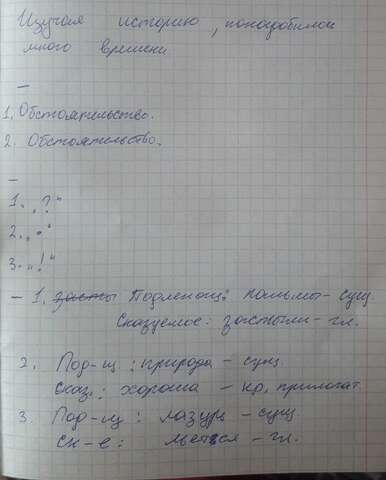 Изучая историю, понадобилось
много времени
–
1. Обстоятельство.
2. Обстоятельство.
–
1. „?“
2. „.“
3. „!“
– 1. засты Подлежащ: пальмы – сущ.
Сказуемое: застыли – гл.
2. Под-щ: природа – сущ.
Сказ: хороша – кр. прилагат.
3. Под-щ: лазурь – сущ.
Ск-е: льётся – гл.